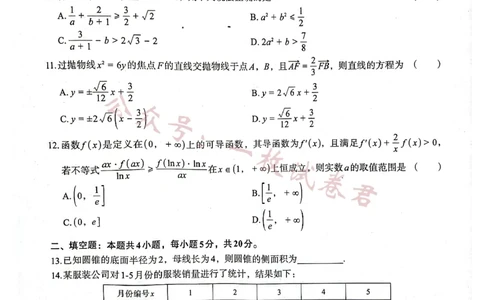 A. 1/a + 2/(b+1) ≥ 3/2 + √2
B. a² + b² ≤ 1/2
C. 3/(a+1) - b > 2√3 - 2
D. 2a² + b > 7/8
11.过抛物线x² = 6y的焦点F的直线交抛物线于点A，B，且AF = 2/3 FB，则直线的方程为 （ ）
A. y = ± √6/12 x + 3/2
B. y = 2√6 x + 3/2
C. y = ±2√6 (x - 3/2)
D. y = √6/12 x + 3/2
12.函数f(x)是定义在(0，+∞)上的可导函数，其导函数为f′(x)，且满足f′(x) + 2/x f(x) > 0，
若不等式 ax·f(ax)/lnx ≥ f(lnx)·lnx/ax 在x∈(1，+∞)上恒成立，则实数a的取值范围是 （ ）
A. (0, 1/e]
B. [1/e, +∞)
C. (0, e]
D. (1/e, +∞)
二、填空题：本题共4小题，每小题5分，共20分。
13.已知圆锥的底面半径为2，母线长为4，则圆锥的侧面积为________.
14.某服装公司对1-5月份的服装销量进行了统计，结果如下：
月份编号x 1 2 3 4 5
公众号：一枕试卷君